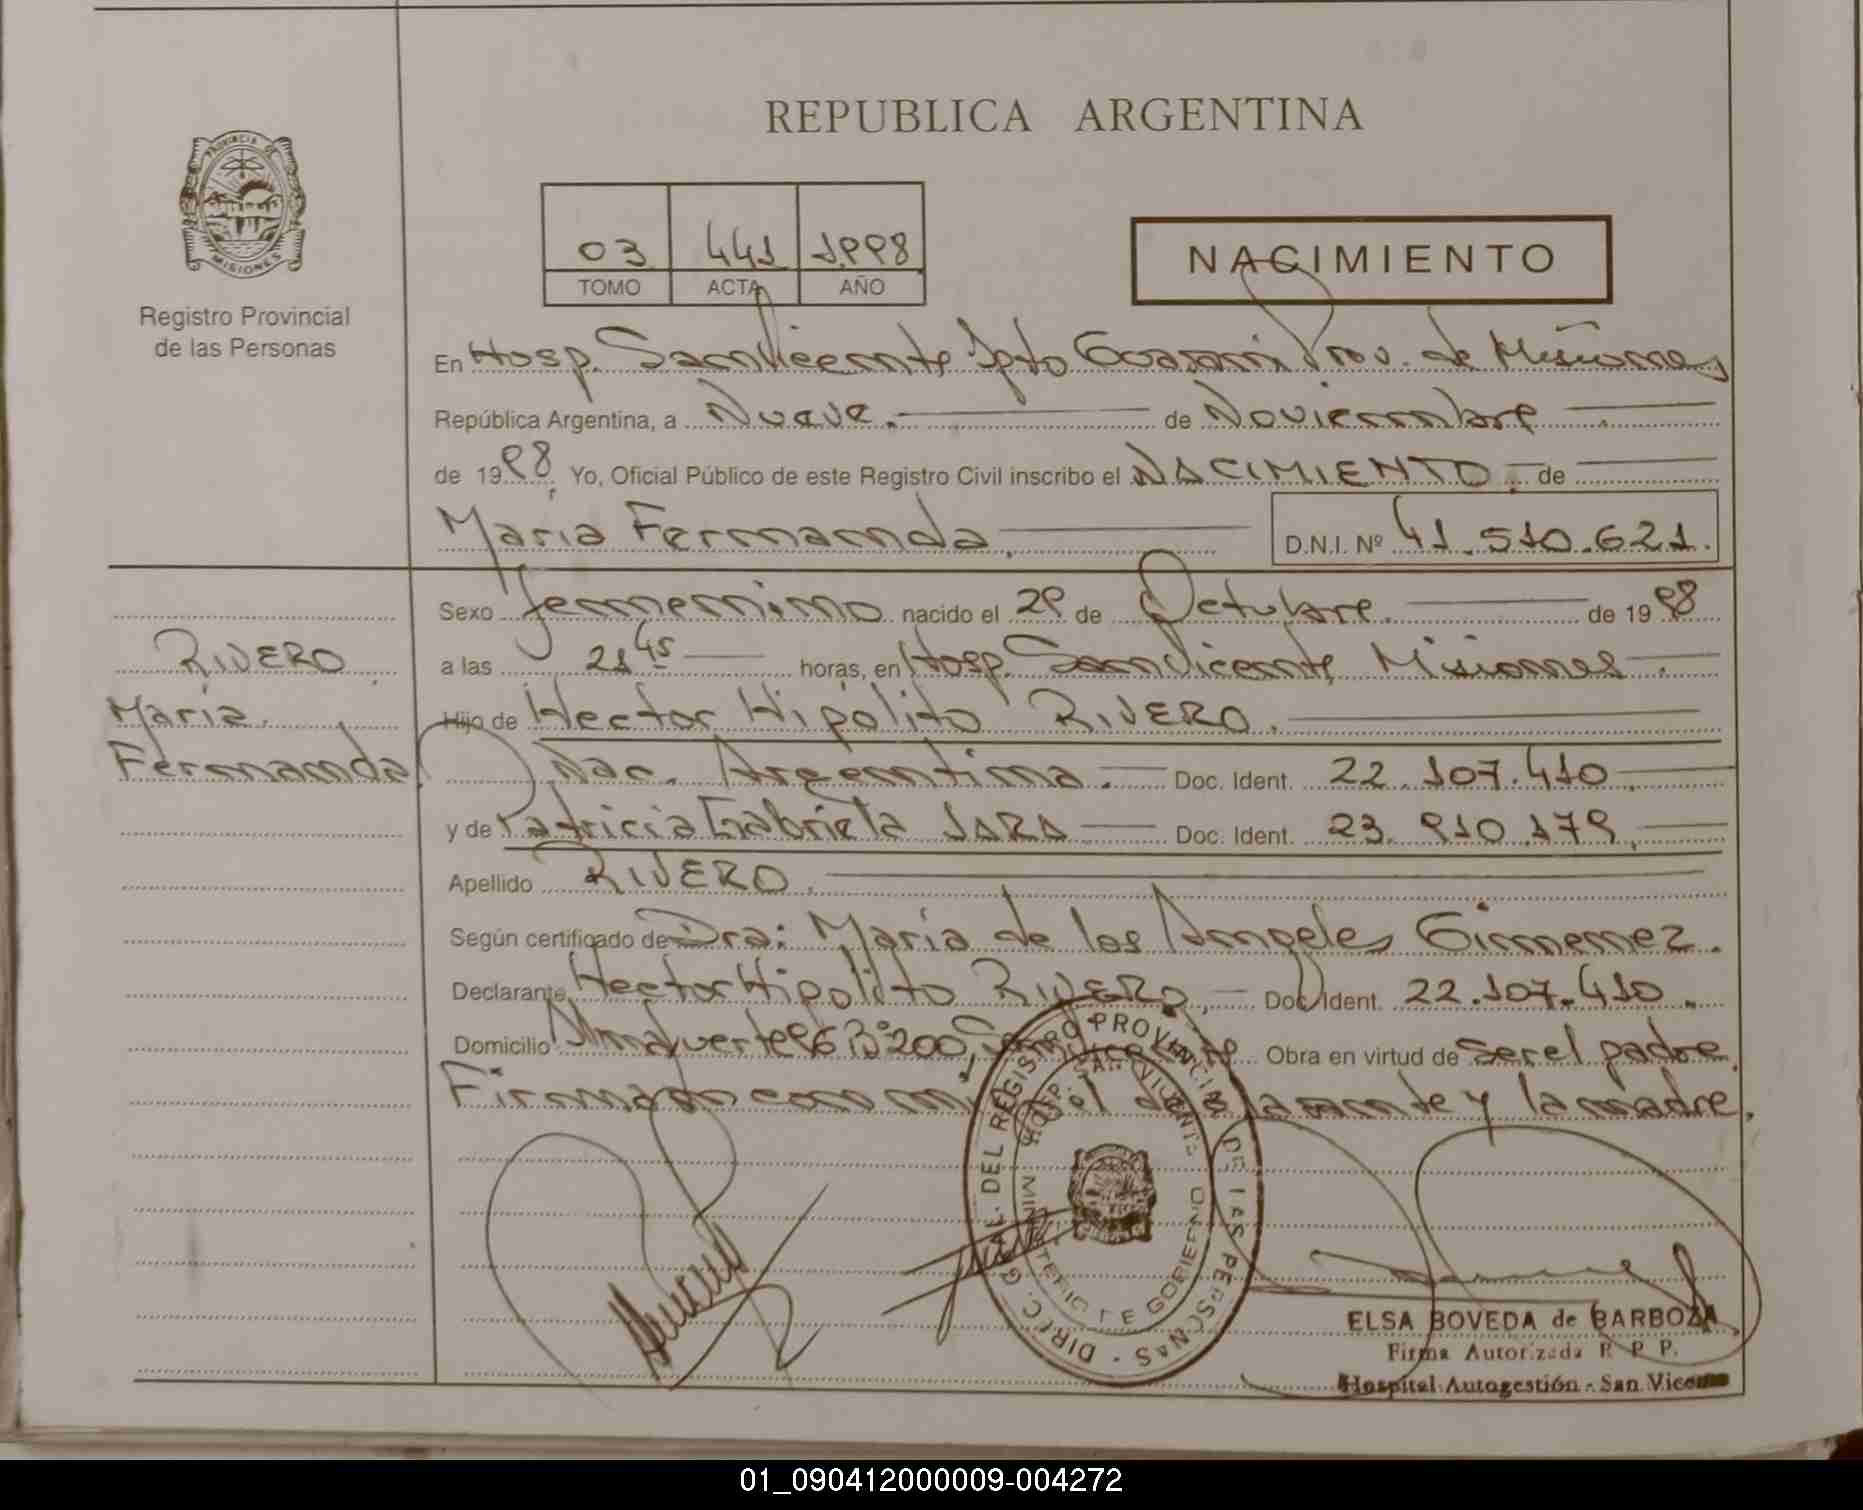 REPUBLICA ARGENTINA
PROVINCIA DE
MISIONES
Registro Provincial
de las Personas
03 441 1998
TOMO ACTA AÑO
NACIMIENTO
En Hosp. San Vicente Dpto Guarani Prov. de Misiones
República Argentina, a Nueve. de Noviembre
de 1998, Yo, Oficial Público de este Registro Civil inscribo el NACIMIENTO. de
Maria Fernanda. D.N.I. Nº 41.510.621.
Sexo femenino nacido el 29 de Octubre. de 1998
a las 21 45 horas, en Hosp. San Vicente, Misiones.
Hijo de Hector Hipólito RIVERO.
Nac. Argentina. Doc. Ident. 22.107.410
y de Patricia Gabriela JARA Doc. Ident. 23.910.179.
Apellido RIVERO.
Según certificado de Dra: Maria de los Angeles Gimenez.
Declarante Hector Hipolito RIVERO, Doc. Ident. 22.107.410.
Domicilio 96 Bº 200, San Vicente Obra en virtud de ser el padre.
Firman con mi el declarante y la madre.
RIVERO
Maria
Fernanda
DIREC. GRAL. DEL REGISTRO PROVINCIAL DE LAS PERSONAS
HOSP. SAN VICENTE
MINISTERIO DE GOBIERNO
ELSA BOVEDA de BARBOZA
Firma Autorizada R. P. P.
Hospital Autogestión - San Vicente
01_090412000009-004272